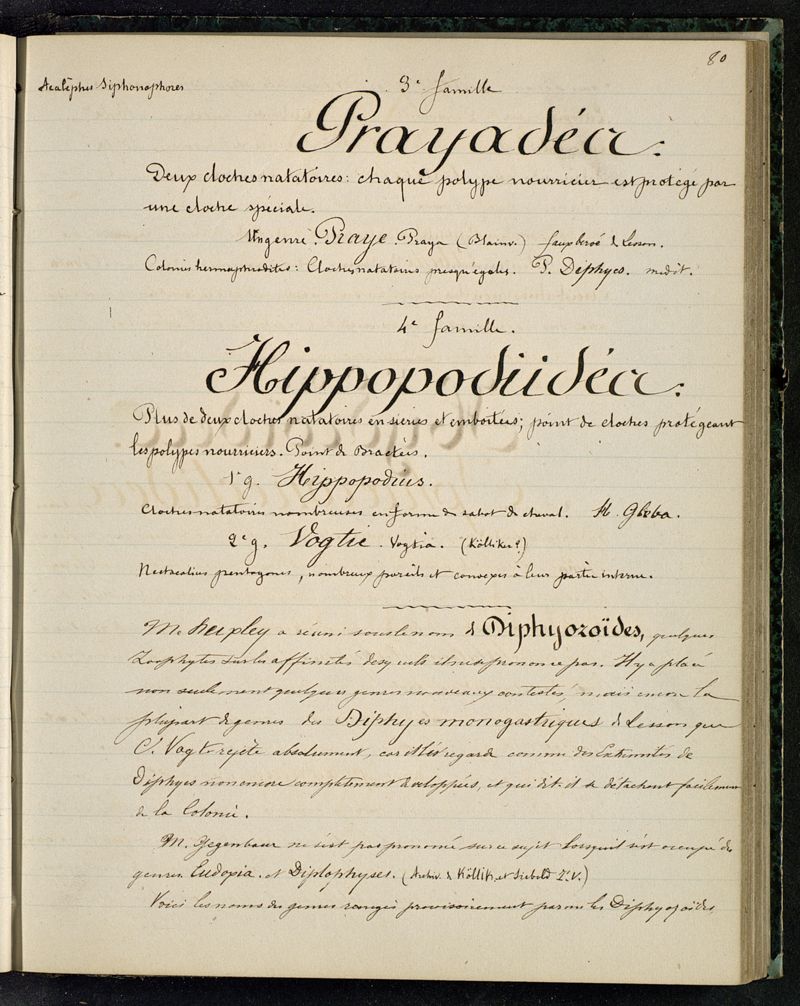 80
Acalèphes Siphonophores
3e famille
Prayadéa.
Deux cloches natatoires: chaque polype nourricier est protégé par
une cloche spéciale.
Un genre. Praye. Praya (Blainv.) fauxberoé de Lesson.
Colonies hermaphrodites: Cloches natatoires presqu'égales. P. Diphyes. medit.
4e famille.
Hippopodiidéa.
Plus de deux cloches natatoires en series et emboitées; point de cloches protégeant
les polypes nourriciers. Point de Bractées.
1r g. Hippopodius.
Cloches natatoires nombreuses en forme de sabot de cheval. H. Gleba.
2e g. Vogtie. Vogtia. (Kölliker)
pentagones, nombreux pareils et convexes à leur partie interne.
M. Huxley a réuni sous le nom de Diphyozoïdes, quelques
Zoophytes sur les affinités desquels il ne se prononce pas. Il y a placé
non seulement quelques genres nouveaux contestés mais encore la
plupart de genres des Diphyes monogastriques de Lesson que
C. Vogt rejète absolument, car il les regarde comme des Extremités de
Diphyes non encore completement developpées, et qui dit-il se détachent facilement
de la Colonie.
M. Gegenbaur ne s'est pas prononcé sur ce sujet lorsqu'il s'est occupé du
genres Eudoxia. et Diplophyses. (Archiv. de Köllik. et Siebold T.V.)
Voici les noms des genres rangés provisoirement parmi les Diphyozoïdes